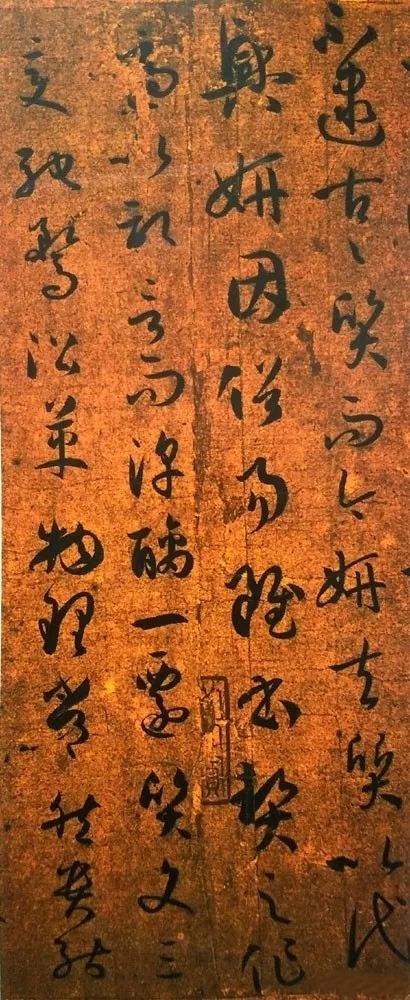 不逮古々質而今妍夫質以代
興妍因俗易雖書契之作
適以記言而淳醨一遷質文三
變馳騖沿革物理常然貴能